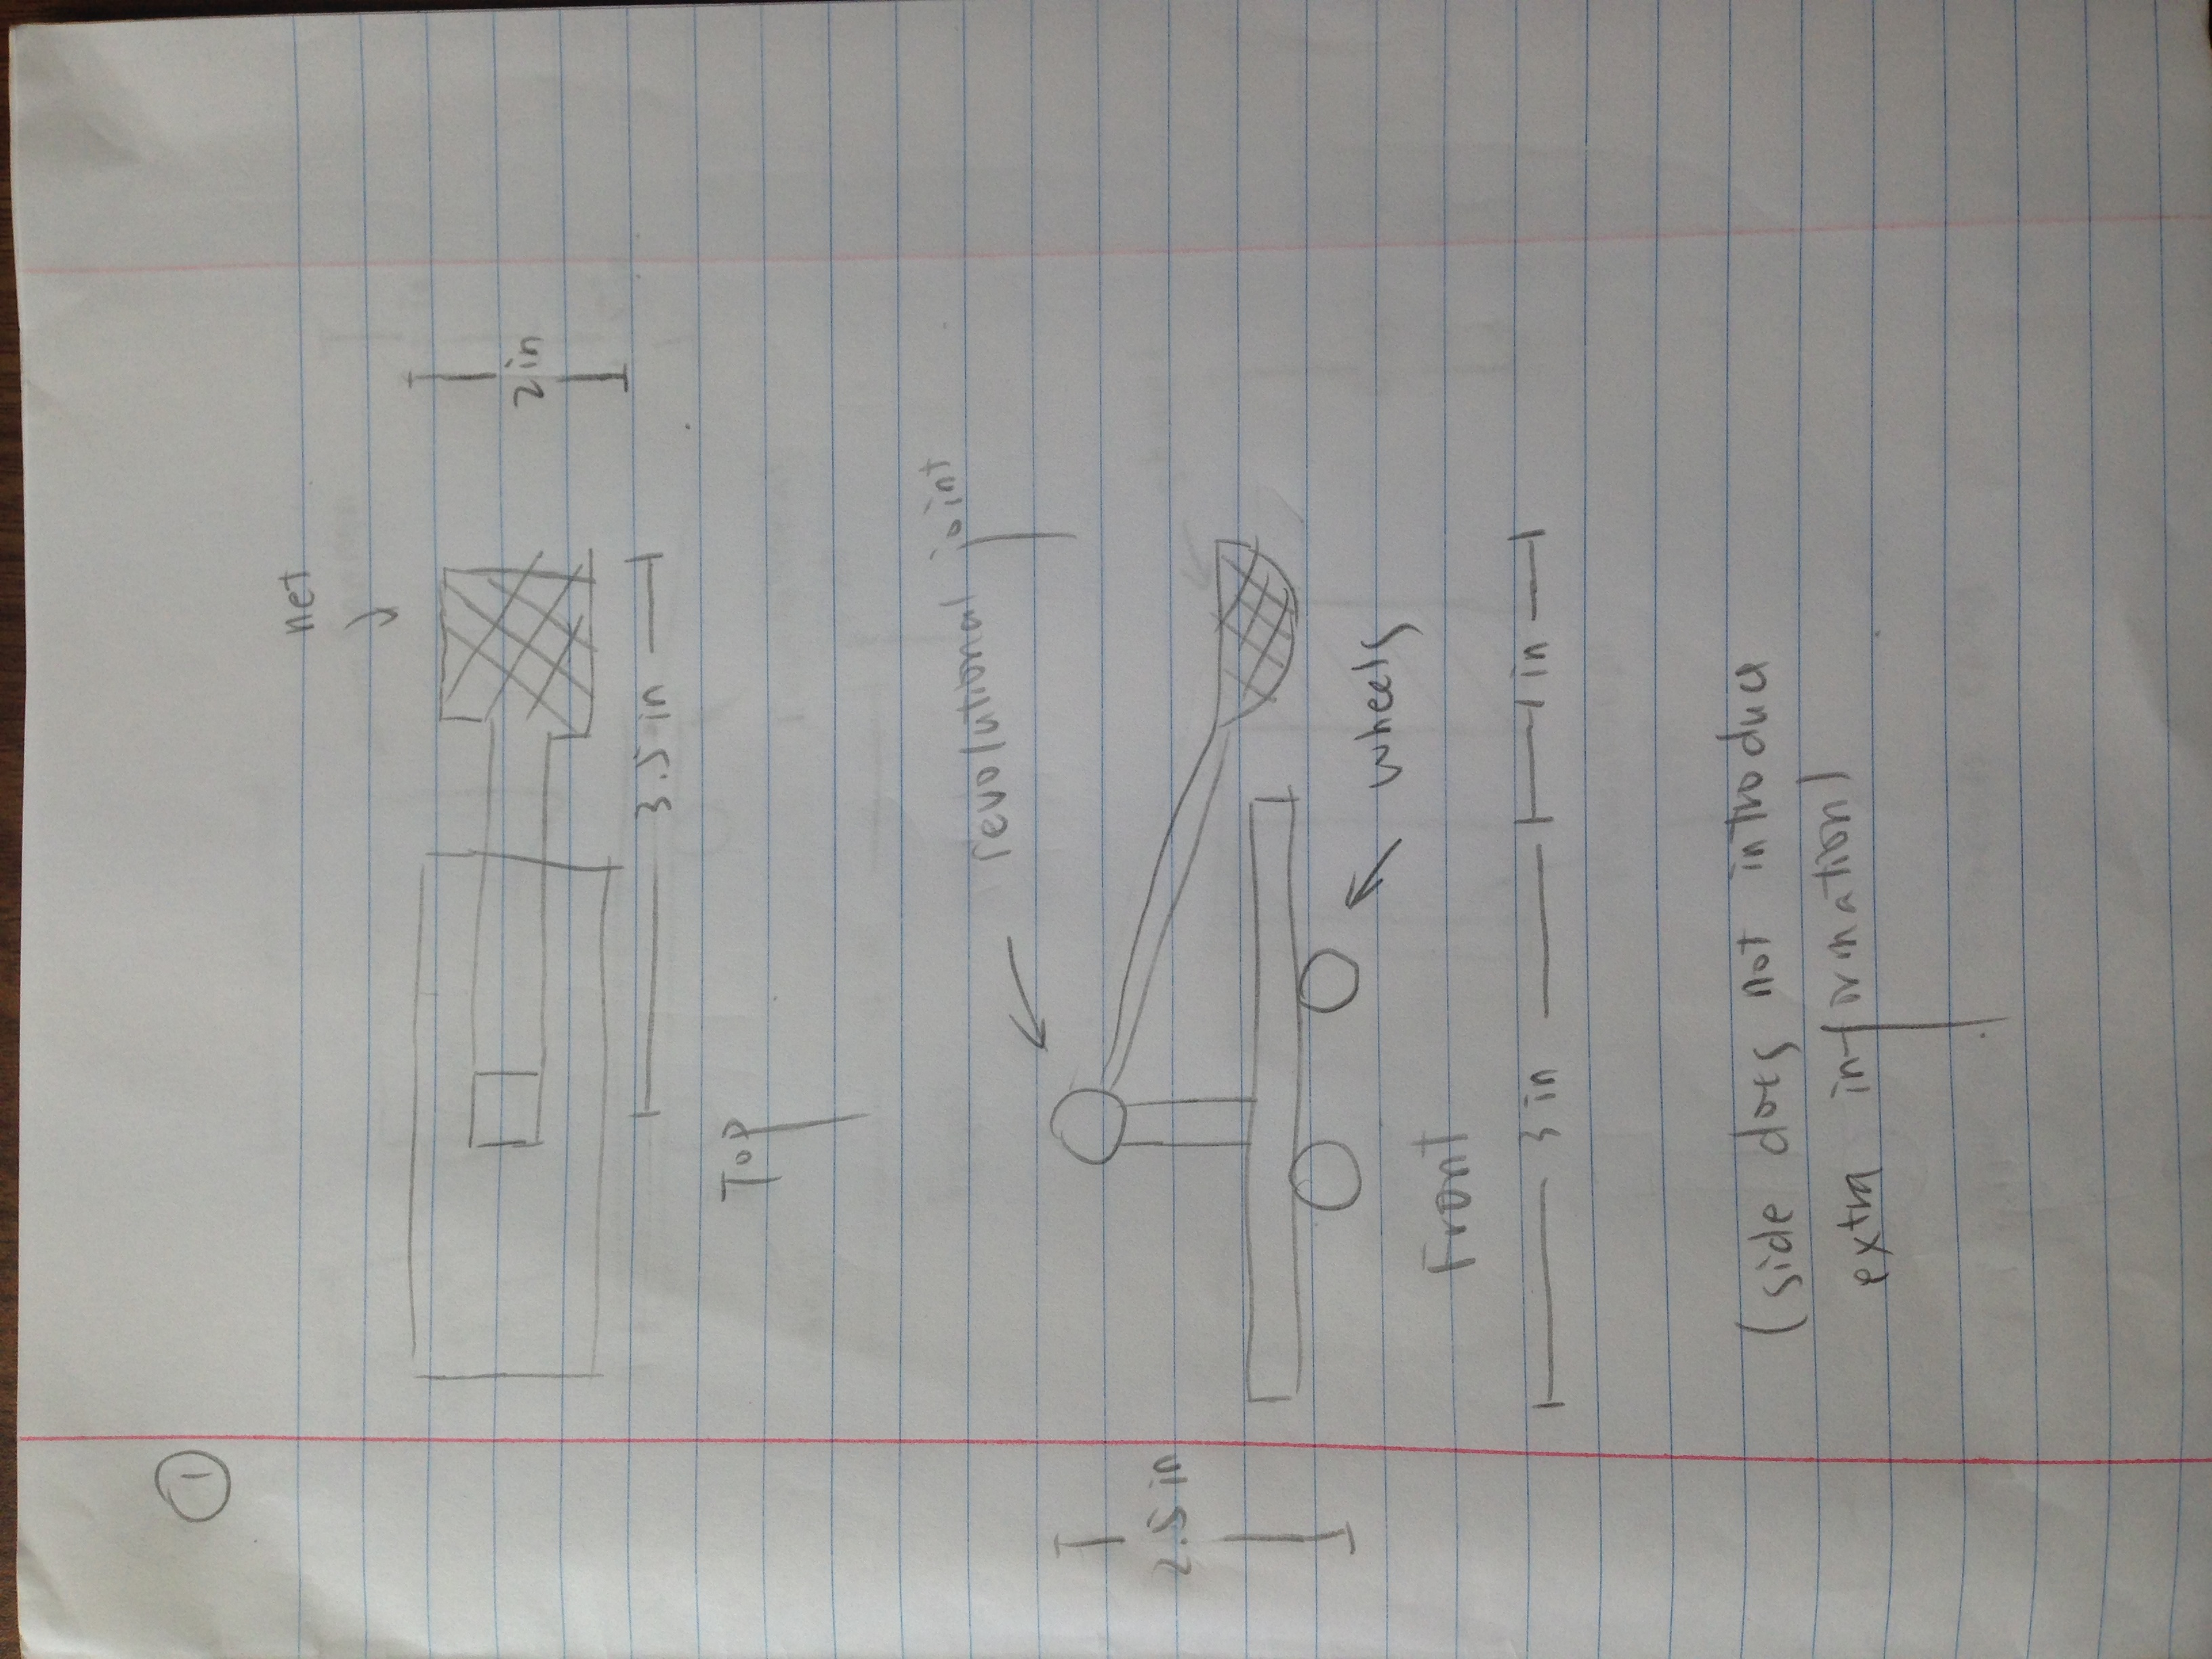 1
net
2 in
3.5 in
Top
revolutional joint
2.5 in
wheels
Front
3 in
1 in
(side does not introduce
extra information)